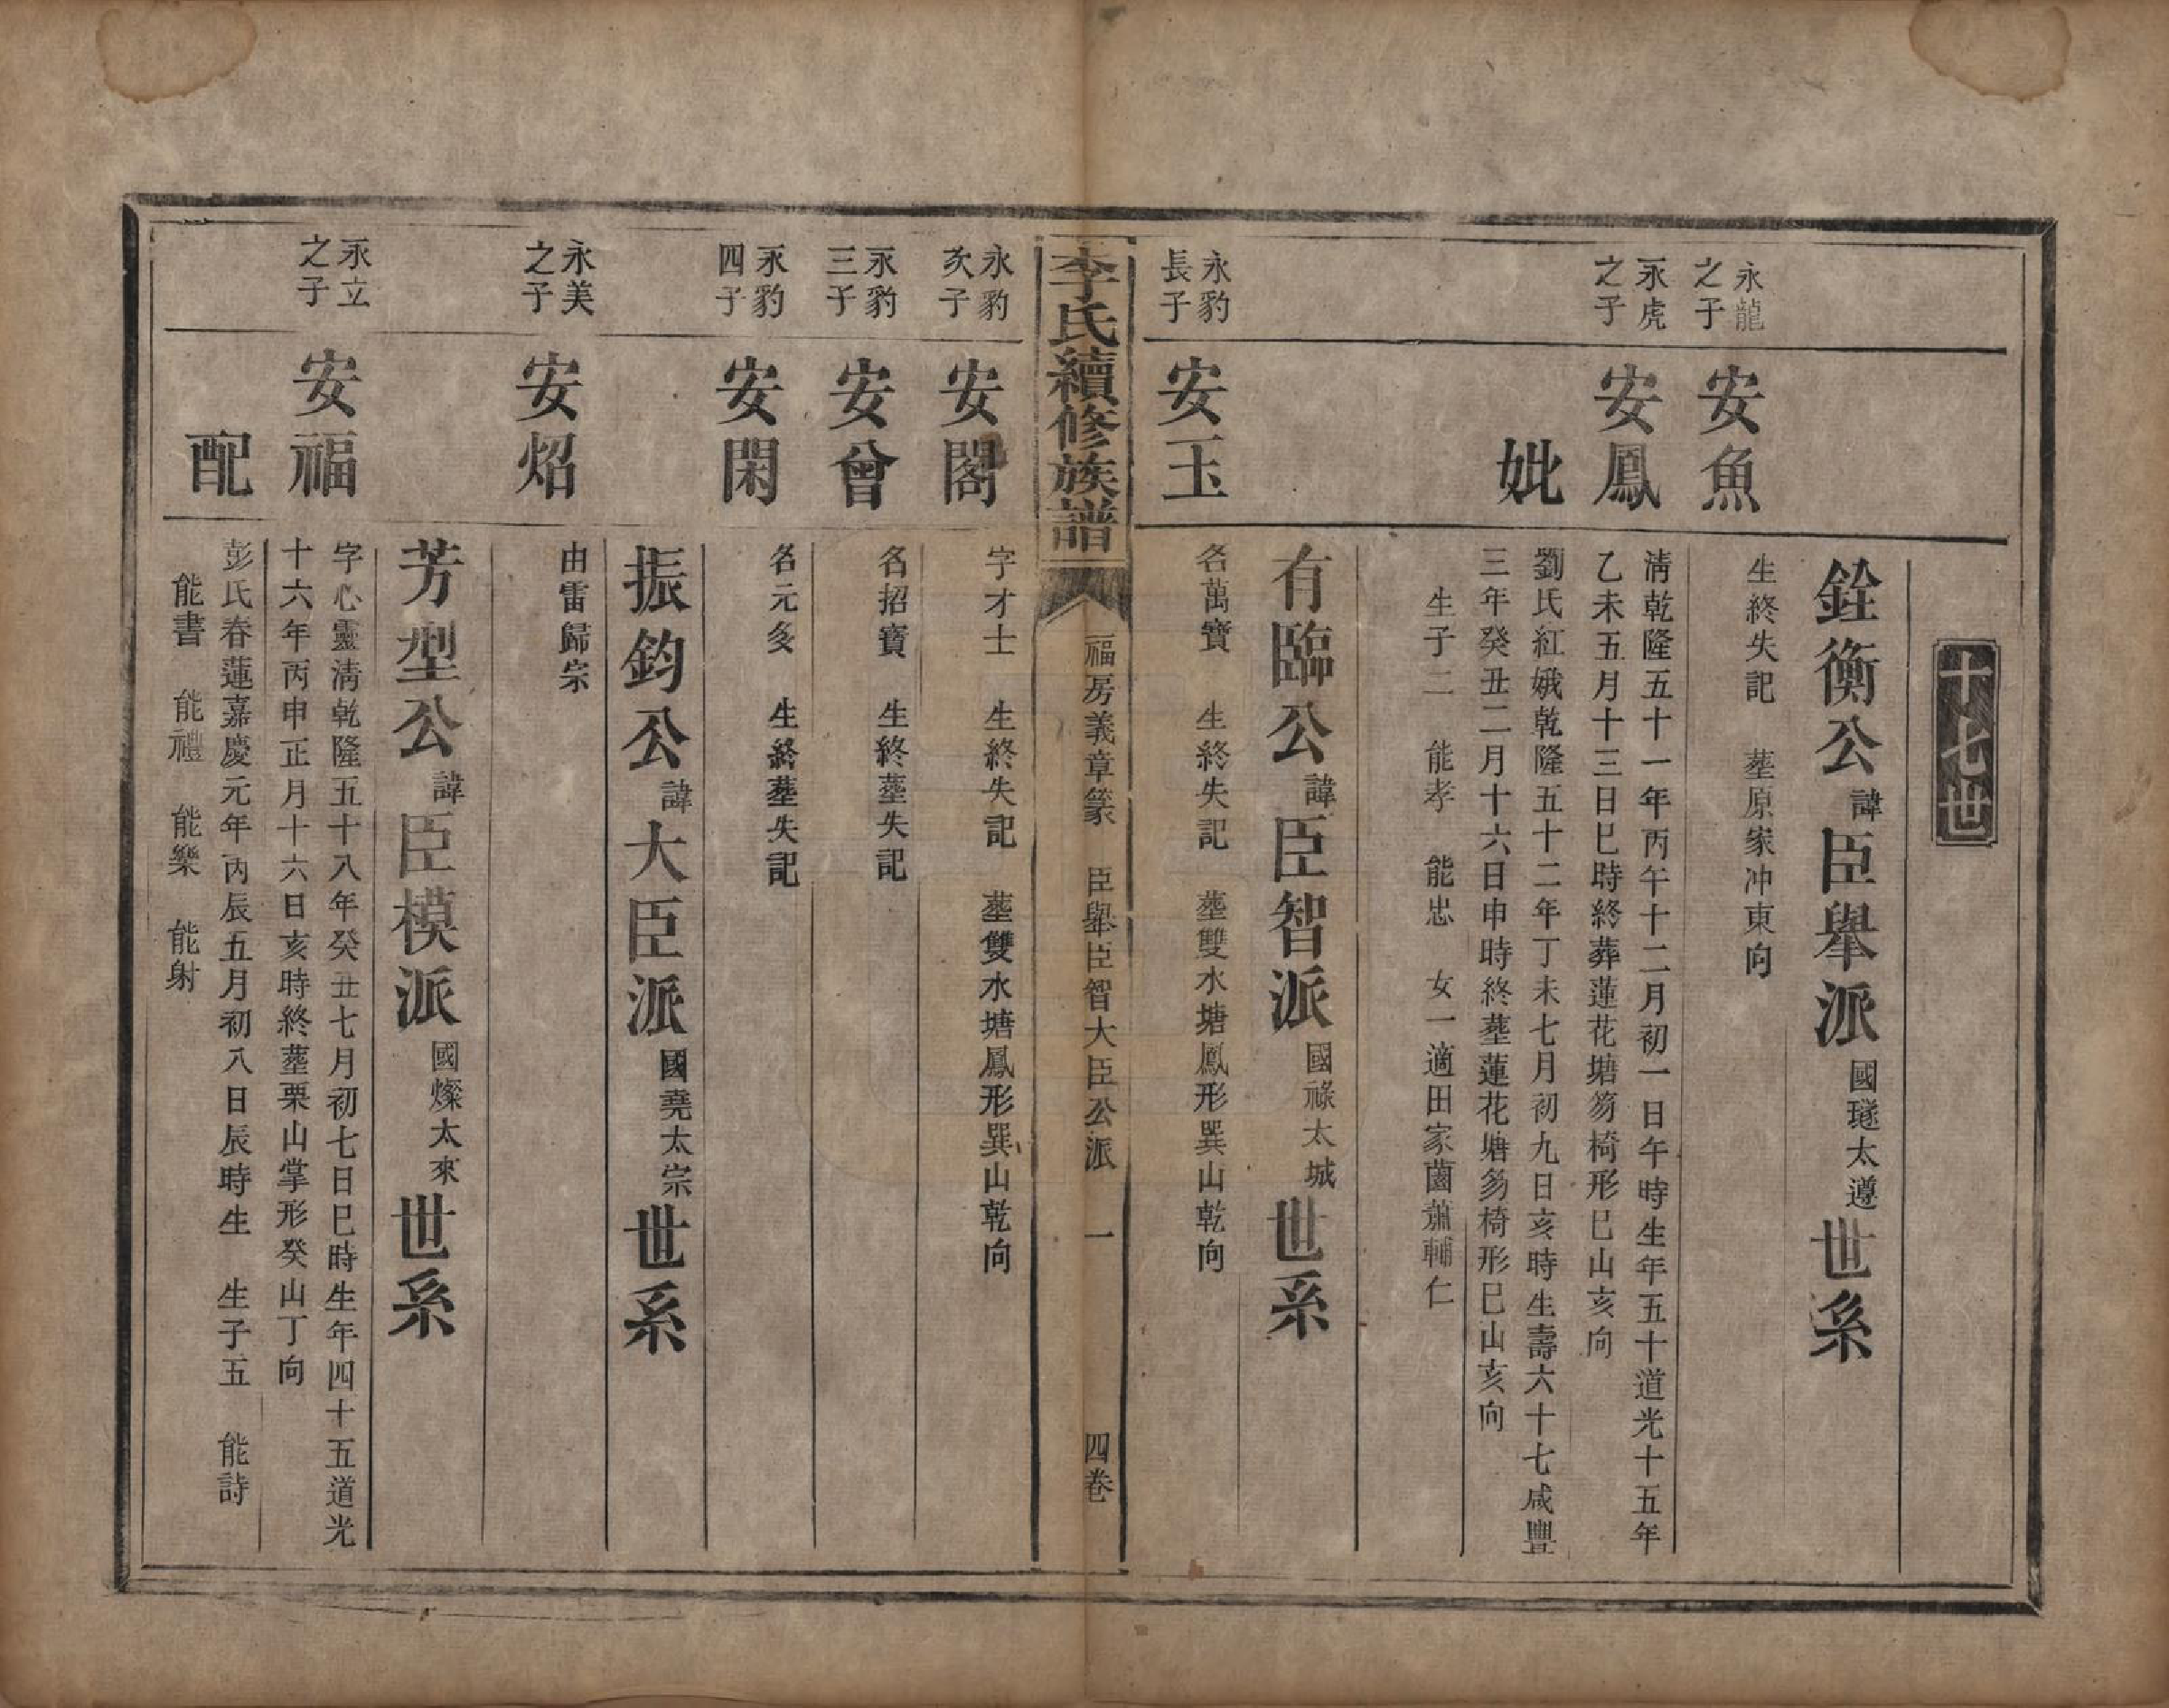 十七世
銓衡公諱臣舉派國璲太遵世系
永龍之子
安魚
生終失記 塟原家冲東向
永虎之子
安鳳
清乾隆五十一年丙午十二月初一日午時生年五十道光十五年
乙未五月十三日巳時終葬蓮花塘笏椅形巳山亥向
妣
劉氏紅娥乾隆五十二年丁未七月初九日亥時生壽六十七咸豐
三年癸丑二月十六日申時終塟蓮花塘笏椅形巳山亥向
生子二 能孝 能忠 女一適田家薗蕭輔仁
有臨公諱臣智派國祿太城世系
永豹長子
安玉
名萬寶 生終失記 塟雙水塘鳳形巽山乾向
李氏續修族譜
福房義章篆 臣舉臣智大臣公派 一 四卷
永豹次子
安閣
字才士 生終失記 塟雙水塘鳳形巽山乾向
永豹三子
安曾
名招寶 生終塟失記
永豹四子
安閑
名元多 生終塟失記
振鈞公諱大臣派國堯太宗世系
永美之子
安炤
由雷歸宗
芳型公諱臣模派國燦太來世系
永立之子
安福
字心靈清乾隆五十八年癸丑七月初七日巳時生年四十五道光
十六年丙申正月十六日亥時終塟栗山掌形癸山丁向
配
彭氏春蓮嘉慶元年丙辰五月初八日辰時生 生子五 能詩
能書 能禮 能樂 能射